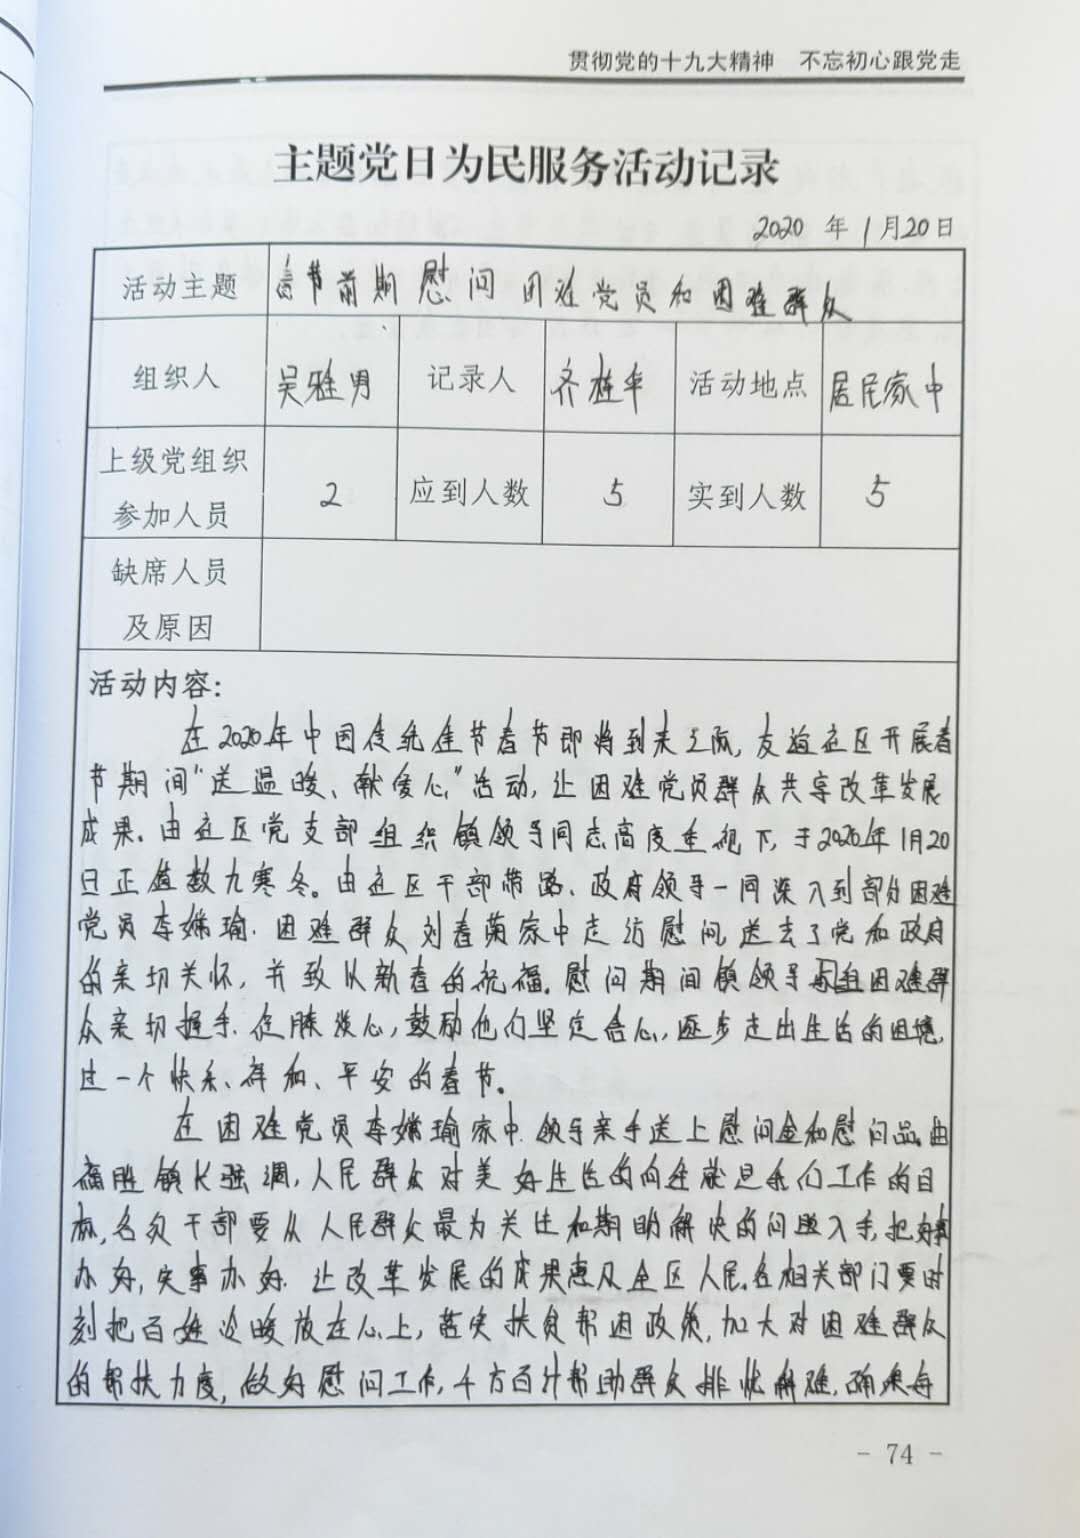 贯彻党的十九大精神　不忘初心跟党走
主题党日为民服务活动记录
2020 年 1月20日
活动主题 春节前期慰问困难党员和困难群众
组织人 吴雅男 记录人 齐桂华 活动地点 居民家中
上级党组织
参加人员 2 应到人数 5 实到人数 5
缺席人员
及原因
活动内容:
在2020年中国传统佳节春节即将到来之际,友谊社区开展春
节期间“送温暖、献爱心”活动,让困难党员群众共享改革发展
成果。由社区党支部组织镇领导同志高度重视下,于2020年1月20
日正值数九寒冬。由社区干部带路、政府领导一同深入到部分困难
党员李嫦瑜.困难群众刘春菊家中走访慰问,送去了党和政府
的亲切关怀,并致以新春的祝福。慰问期间镇领导与困难群
众亲切握手.促膝谈心,鼓励他们坚定信心,逐步走出生活的困境,
过一个快乐、祥和、平安的春节。
在困难党员李嫦瑜家中.领导亲手送上慰问金和慰问品。由
福胜镇长强调,人民群众对美好生活的向往就是我们工作的目
标,各级干部要从人民群众最为关注和期盼解决的问题入手,把好事
办好,实事办好.让改革发展的成果惠及全区人民。各相关部门要时
刻把百姓冷暖放在心上,落实扶贫帮困政策,加大对困难群众
的帮扶力度,做好慰问工作,千方百计帮助群众排忧解难,确保每
- 74 -